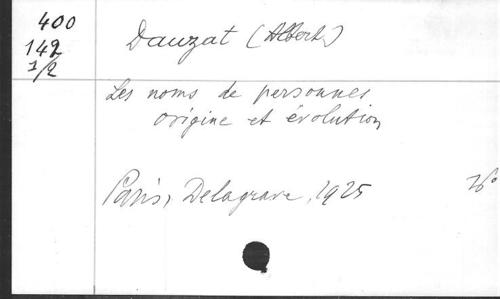 400
142
1/2
Dauzat (Albert)
Les noms de personnes
origine et évolution
Paris, Delagrave, 1925